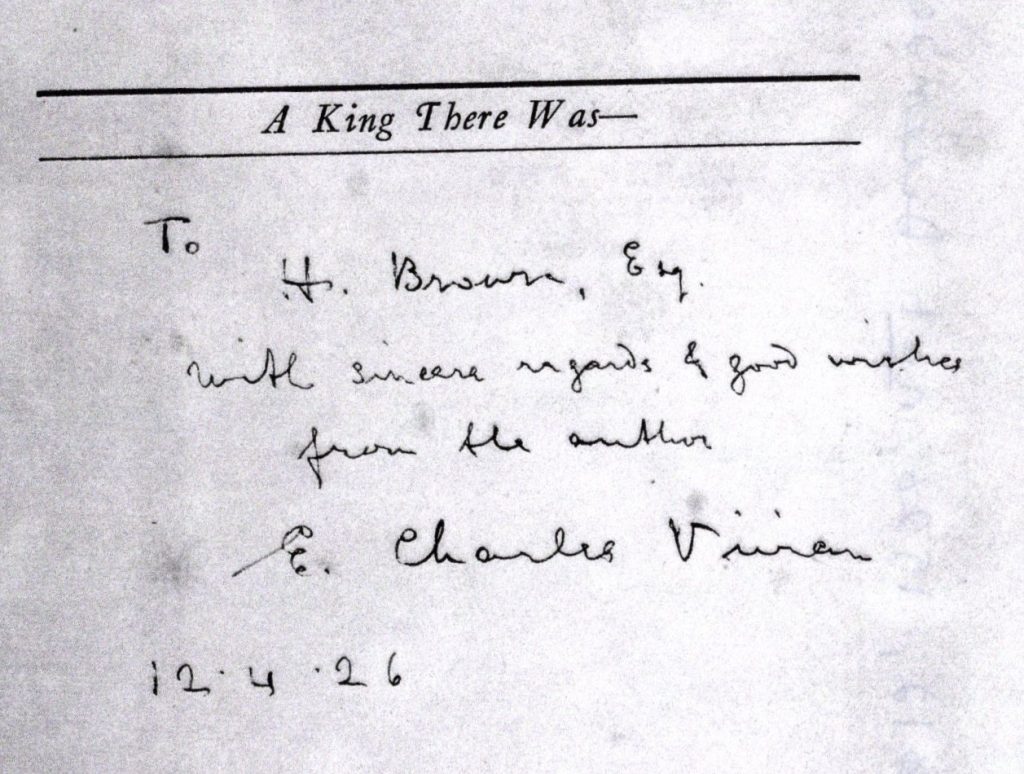 A King There Was—
To
H. Brown, Esq.
with sincere regards & good wishes
from the author
E. Charles Vivian
12.4.26